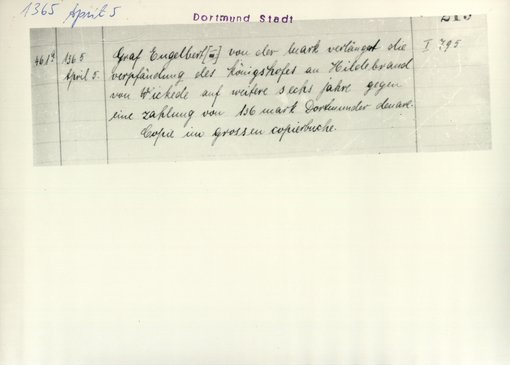 1365 April 5
Dortmund Stadt
1365 Graf Engelbert [III] von der Mark verlängert die I 795
April 5. verpfändung des Königshofes an Hildebrand
von Wickede auf weitere sechs jahre gegen
eine zahlung von 136 mark Dortmunder denare.
Copie im grossen copierbuche.